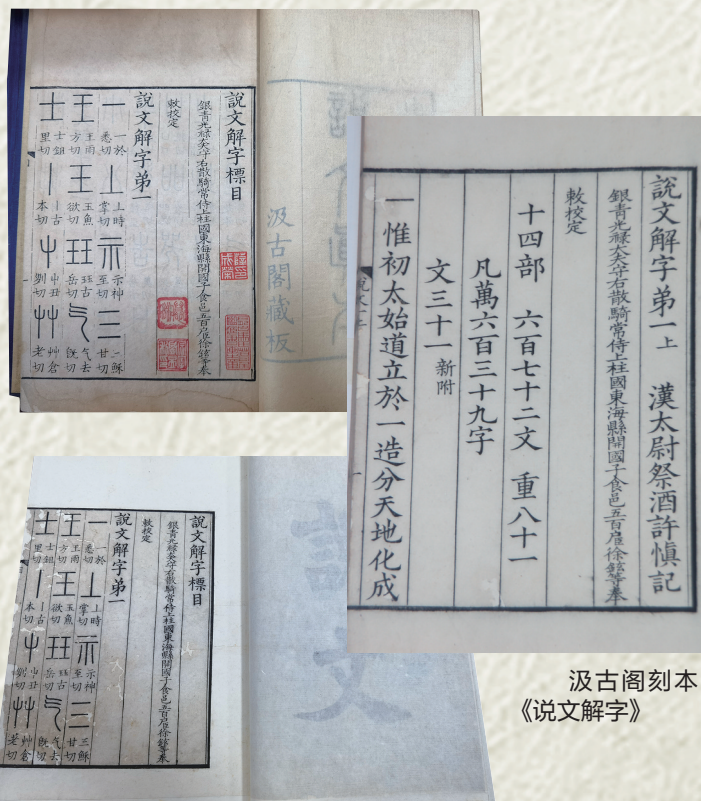 汲古閣藏板
說文解字標目
銀青光祿大夫守右散騎常侍上柱國東海縣開國子食邑五百戶徐鉉等奉
敕校定
說文解字弟一
一 一於悉切 丄 丄時掌切 示 示神至切 三 三穌甘切
王 王雨方切 玉 玉魚欲切 玨 玨古岳切 气 气去旣切
士 士鉏里切 丨 丨古本切 屮 屮丑列切 艸 艸倉老切
說文解字弟一上 漢太尉祭酒許愼記
銀青光祿大夫守右散騎常侍上柱國東海縣開國子食邑五百戶徐鉉等奉
敕校定
十四部 六百七十二文 重八十一
凡萬六百三十九字
文三十一新附
一惟初太始道立於一造分天地化成
說文
說文解字標目
銀青光祿大夫守右散騎常侍上柱國東海縣開國子食邑五百戶徐鉉等奉
敕校定
說文解字弟一
一 一於悉切 丄 丄時掌切 示 示神至切 三 三穌甘切
王 王雨方切 玉 玉魚欲切 玨 玨古岳切 气 气去旣切
士 士鉏里切 丨 丨古本切 屮 屮丑列切 艸 艸倉老切
汲古阁刻本
《说文解字》